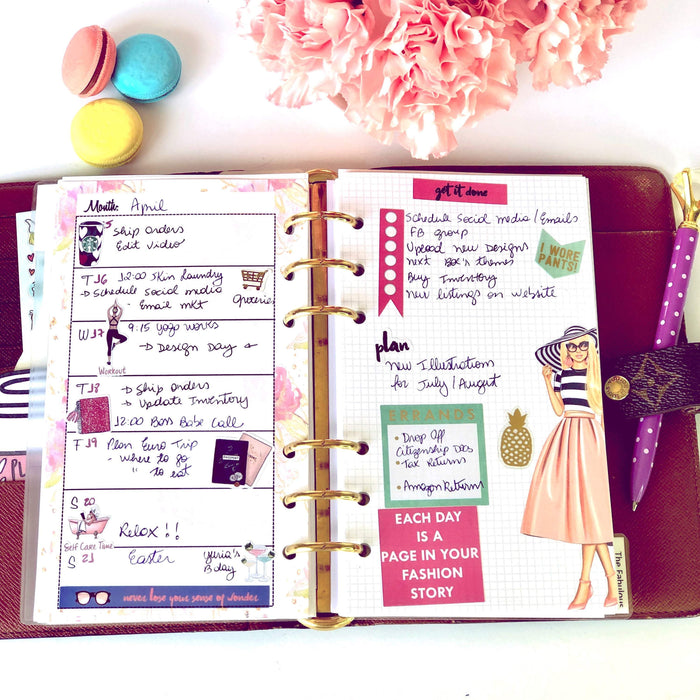 Month: April
5
Ship orders
Edit Video
T 16 12:00 Skin laundry
→ Schedule social media
- Email mkt
Groceries
W 17 9:15 yoga works
→ Design Day
Workout
T 18 → Ship orders
→ Update Inventory
12:00 Boss Babe Call
F 19 Plan Euro Trip
- Where to go
" to eat
PASSPORT
S 20
Relax !!
Self Care Time
S 21 Easter Yuria's
B day
never lose your sense of wonder
get it done
Schedule Social media / Emails
FB group
Upload new Designs
next Box's themes
Buy Inventory
New listings on website
I WORE
PANTS!
plan
new Illustrations
for July / August
ERRANDS
Drop Off
Citizenship Docs
Tax Returns
Amazon Returns
EACH DAY
IS A
PAGE IN YOUR
FASHION
STORY
The Fabulous